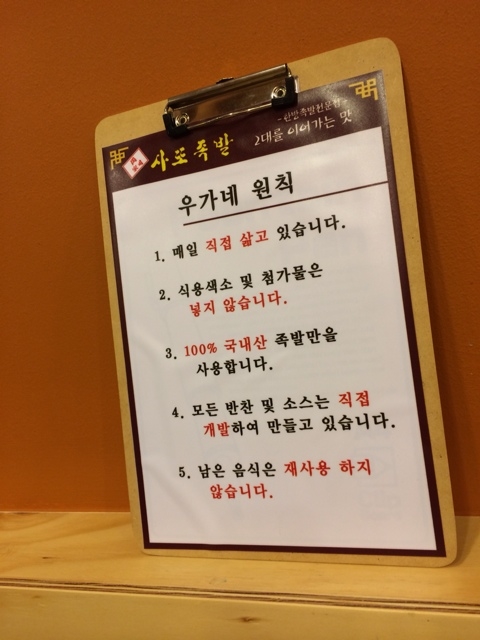 사또족발
-한방족발전문점-
2대를 이어가는 맛
우가네 원칙
1. 매일 직접 삶고 있습니다.
2. 식용색소 및 첨가물은
넣지 않습니다.
3. 100% 국내산 족발만을
사용합니다.
4. 모든 반찬 및 소스는 직접
개발하여 만들고 있습니다.
5. 남은 음식은 재사용 하지
않습니다.